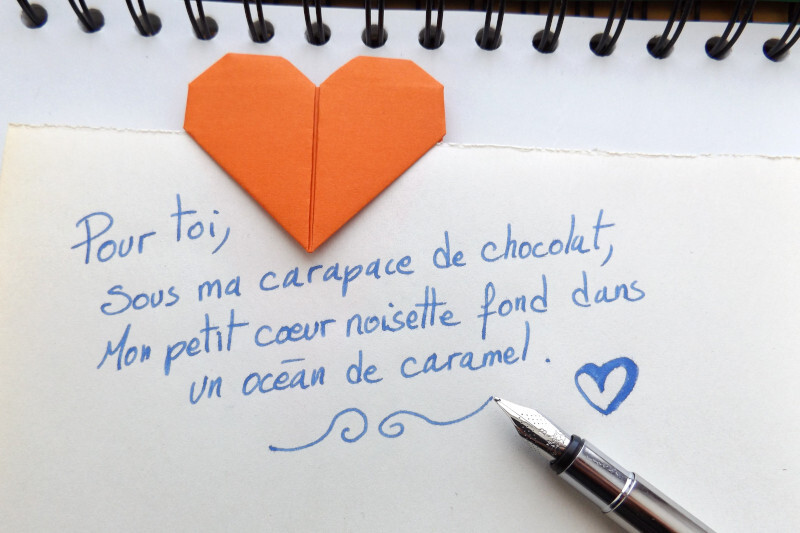 Pour toi,
Sous ma carapace de chocolat,
Mon petit cœur noisette fond dans
un océan de caramel.